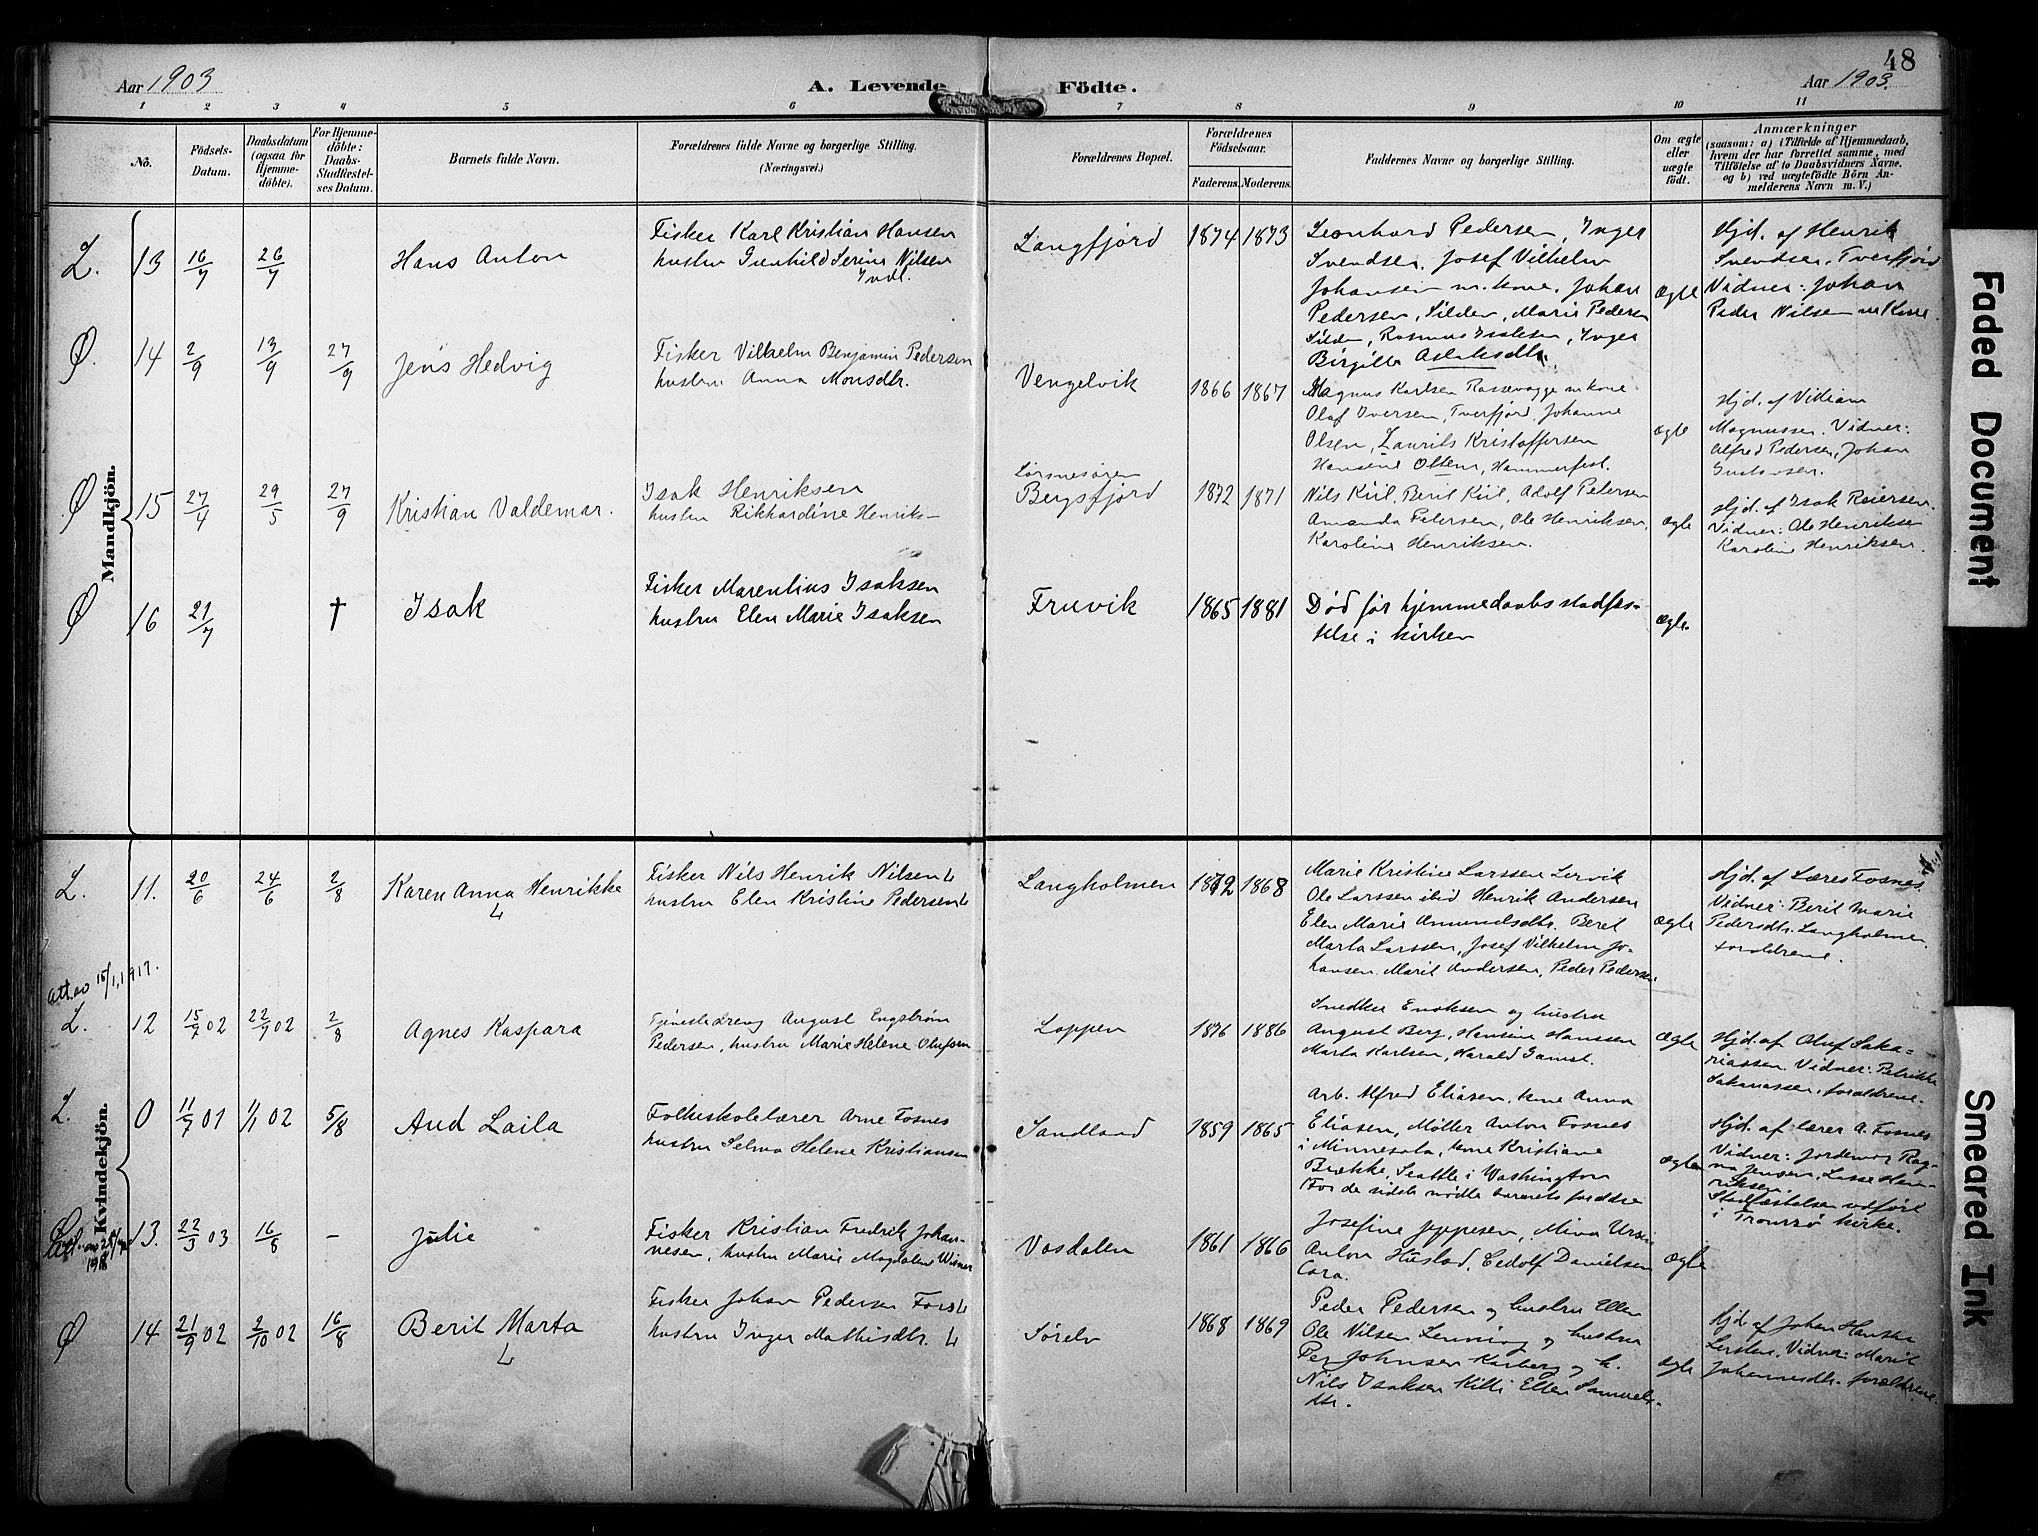 48
Aar 1903
A. Levende Födte.
Aar 1903.
1 2 3 4 5 6 7 8 9 10 11
No.
Födsels-
Datum.
Daabsdatum
(ogsaa for
Hjemme-
döbte).
For Hjemme-
döbte:
Daabs-
Stadfæstel-
ses Datum.
Barnets fulde Navn.
Forældrenes fulde Navne og borgerlige Stilling.
(Næringsvei.)
Forældrenes Bopæl.
Forældrenes
Födselsaar.
Faderens. Moderens.
Faddernes Navne og borgerlige Stilling.
Om ægte
eller
uægte
födt.
Anmærkninger
(saasom: a) i Tilfælde af Hjemmedaab,
hvem der har forrettet samme, med
Tilföielse af to Daabsvidners Navne.
og b) ved uægtefödte Börn An-
melderens Navn m. V.)
Mandkjön.
L. 13 16/7 26/7 Hans Anton
Fisker Karl Kristian Hansen
hustru Gunhild Serine Nilsen
Indl.
Langfjord 1874 1873
Leonhard Pedersen, Inger
Svendsen, Josef Vilhelm
Johansen m. kone, Johan
Pedersen, Silden, Marie Pedersen
Silden, Rasmus Isaksen, Inger
Birgitte Aslaksdtr.
ægte
Hjd. af Henrik
Svendsen, Tverfjord
Vidner: Johan
Peder Nilsen m Kone.
Ø. 14 2/9 13/9 27/9 Jens Hedvig
Fisker Vilhelm Benjamin Pedersen
hustru Anna Monsdtr.
Vengelvik 1866 1867
Magnus Karlsen Rassevagge m kone
Olaf Iversen, Tverfjord, Johanne
Olsen, Laurits Kristoffersen
Hansine Ottem, Hammerfest.
ægte
Hjd. af Villiam
Magnussen. Vidner:
Alfred Pedersen, Johan
Gustavsen.
Ø 15 27/4 29/5 27/9 Kristian Valdemar.
Isak Henriksen
hustru Rikhardine Henriks-
Bergsfjord 1872 1871
Nils Kiil, Berit Kiil, Adolf Petersen
Amanda Petersen, Ole Henriksen,
Karoline Henriksen.
ægte
Hjd. af Isak Reiersen.
Vidner: Ole Henriksen
Karoline Henriksen.
Ø 16 21/7 † Isak
Fisker Marentius Isaksen
hustru Elen Marie Isaksen
Fruvik 1865 1881
Død før hjemmedaabs stadfæs-
telse i kirken
ægte.
Kvindekjön.
L. 11. 20/6 24/6 2/8 Karen Anna Henrikke
L
Fisker Nils Henrik Nilsen L
hustru Elen Kristine Pedersen L
Langholmen 1872 1868
Marie Kristine Larssen Lervik
Ole Larssen ibid Henrik Andersen
Elen Marie Amundsdtr. Beret
Marta Larssen, Josef Vilhelm Jo-
hansen Marit Andersen, Peder Pedersen
ægte
Hjd. af Lærer Fosnes.
Vidner: Berit Marie
Pedersdtr. Langholmen
foreldrene.
Att. av 15/1, 1917.
L. 12 15/7 02 22/7 02 2/8 Agnes Kaspara
Tjenestedreng August Engstrøm
Pedersen, hustru Marie Helene Olufsen
Loppen 1876 1886
Snedker Enoksen og hustru
August Berg, Hansine Hanssen
Marta Karlsen, Harald Gamst.
Ægte
Hjd. af Oluf Saka=
riassen Vidner: Petrikke
Sakariassen, foreldrene.
L. 0 11/7 01 1/1 02 5/8 Aud Laila
Folkeskolelærer Arne Fosnes
hustru Selma Helene Kristiansen
Sandland 1859 1865
Arb. Alfred Eliasen, kone Anna
Eliasen, Møller Anton Fosnes
i Minnesota, kone Kristiane
Brække, Seattle i Washington
For de sidste mødte barnets foreldre
ægte
Hjd. af lærer A. Fosnes
Vidner: Jordemor Rag-
na Jensen, Lasse Hen-
riksen.
Stadfæstelsen udført
i Tromsø kirke.
13. 22/3 03 16/8 - Julie
Fisker Kristian Fredrik Johan-
nesen, hustru Marie Magdalene
Vasdalen 1861 1866
Josefine Jeppesen, Mina Ursin
Anton Hustad, Cedolf Danielsen
Cora.
Ægte
Ø 14 21/9 02 2/10 02 16/8 Berit Marta
L
Fisker Johan Pedersen Fors L
hustru Inger Mathisdtr. L
Sørelv 1868 1869
Peder Pedersen og hustru Ellen
Ole Nilsen og hustru
Per Johnsen Karberg og h.
Nils Isaksen Kitti Ellen Samuels-
dtr.
ægte
Hjd. af Johan Hansen
Vidner: Marit
Johannesdtr. foreldrene.
Faded Document
Smeared Ink